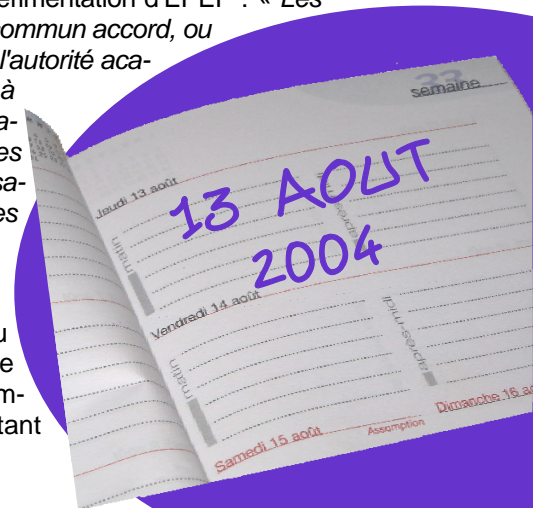 érimentation d'EPEP : « Les
commun accord, ou
l'autorité aca-
à
a-
es
sa-
es
u
e
m-
tant
33
semaine
Jeudi 13 août
13 AOUT
2004
matin
après-midi
Vendredi 14 août
matin
après-midi
Samedi 15 août
Assomption
Dimanche 16 ao